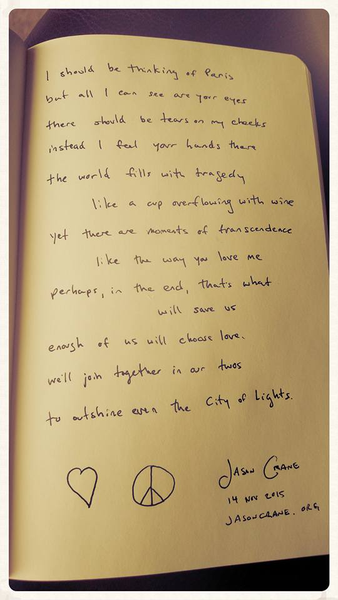 I should be thinking of Paris
but all I can see are your eyes
there should be tears on my cheeks
instead I feel your hands there
the world fills with tragedy
like a cup overflowing with wine
yet there are moments of transcendence
like the way you love me
perhaps, in the end, that's what
will save us
enough of us will choose love.
we'll join together in our twos
to outshine even the City of Lights.
Jason Crane
14 Nov 2015
jasoncrane.org